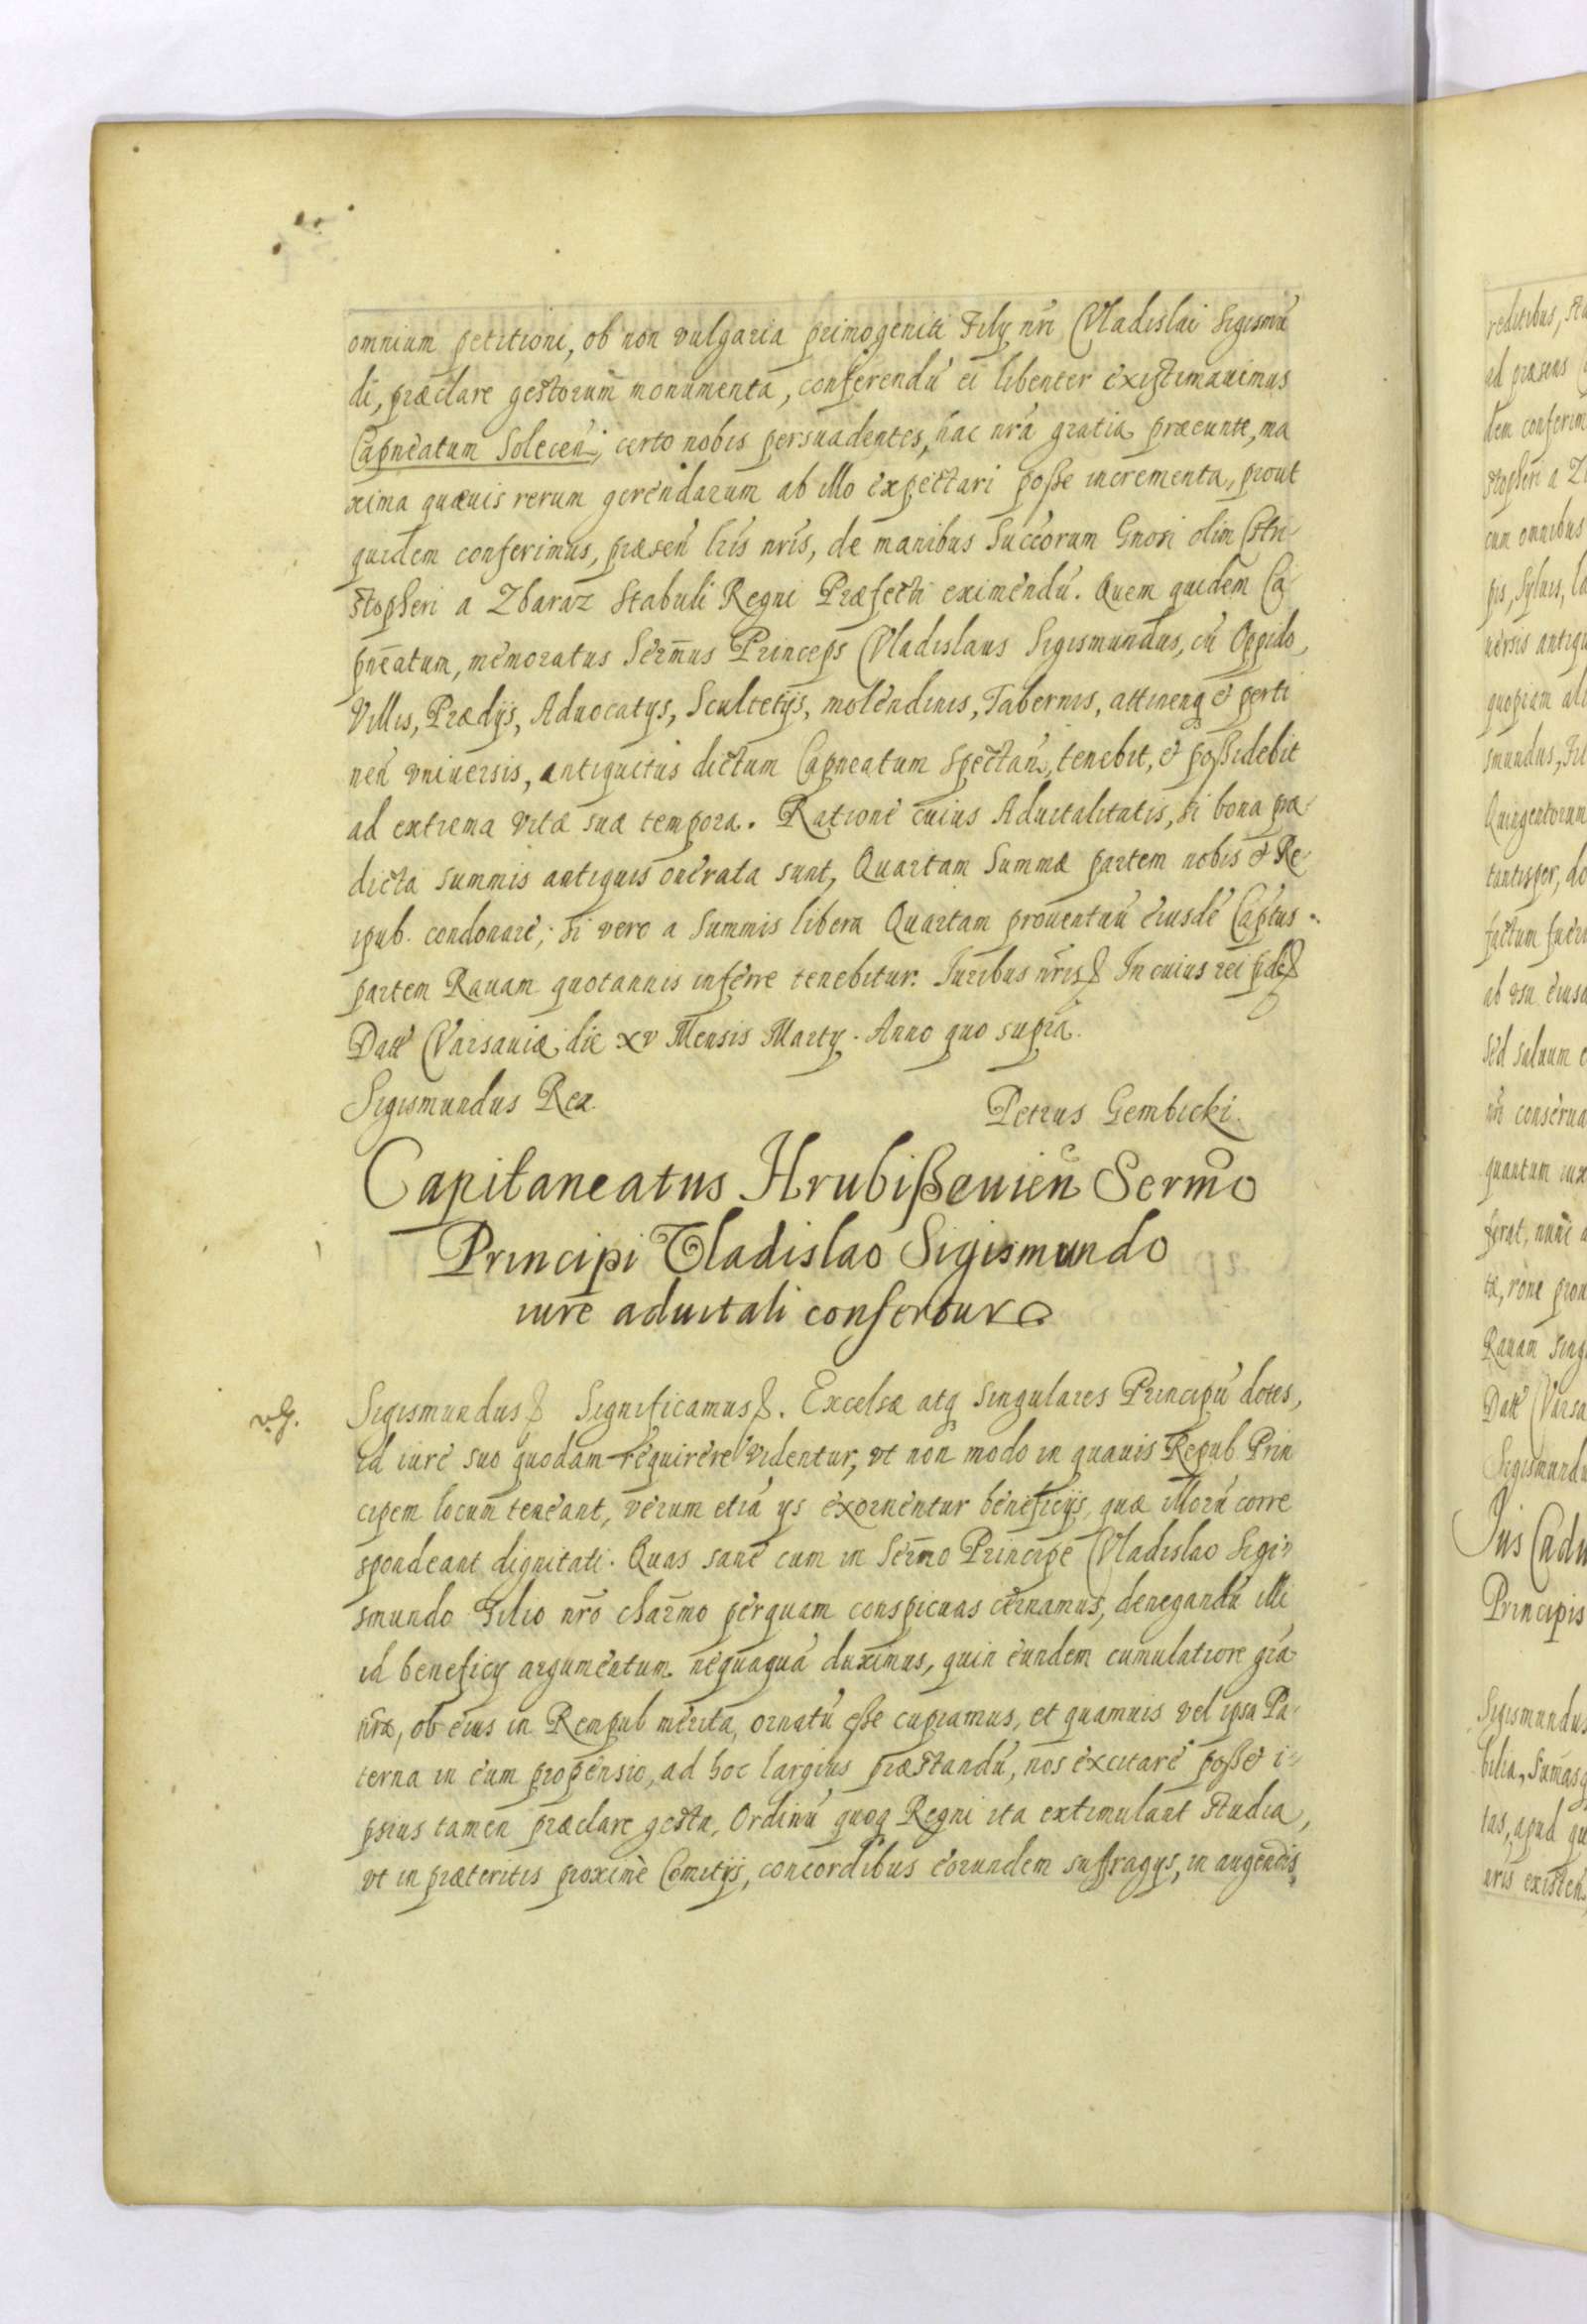 omnium petitioni, ob non vulgaria primogeniti Filÿ nri̅ Vladislai Sigismu̅
di, præclare gestorum monumenta, conferendu̅ ei libenter existimauimus
Capneatum Solecen̅, certo nobis persuadentes, hac nra̅ gratia præeunte, ma
xima quæuis rerum gerendarum ab illo expectari posse incrementa, prout
quidem conferimus, præsen̅ lris̅ nris̅, de manibus Succorum Gnosi olim Chri-
stopheri a Zbaraz Stabuli Regni Præfecti eximendu̅. Quem quidem Ca-
pneatum, memoratus Serm̅us Princeps Vladislaus Sigismundus, cu̅ Oppido,
Villis, Prædijs, Aduocatÿs, Scultetijs, molendinis, Tabernis, attinenq & perti
nen̅ vniuersis, antiquitus dictum Capneatum spectan̅, tenebit, & possidebit
ad extrema vitæ suæ tempora. Ratione cuius Aduitalitatis, si bona præ-
dicta summis antiquis onerata sunt, Quartam Summæ partem nobis & Re-
ipub. condonare; si vero a Summis libera Quartam prouentuu̅ eiusde̅ Captus
partem Rauam quotannis inferre tenebitur. Iuribus nris̅ & In cuius rei fide̅ &
Datt Varsauiæ die xv Mensis Martÿ. Anno quo supra.
Sigismundus Rex. Petrus Gembicki.
Capitaneatus Hrubißeuien̅ Serm̅o
Principi Vladislao Sigismundo
iure aduitali confertur
v. G.
Sigismundus & Significamus &. Excelsæ atq singulares Principu̅ dotes,
id iure suo quodam requirere videntur, vt non modo in quauis Repub. Prin
cipem locum teneant, verum etia̅ ÿs exornentur beneficijs, quæ illoru̅ corre
spondeant dignitati. Quas sane cum in Serm̅o Principe Vladislao Sigi-
smundo Filio nro̅ charm̅o perquam conspicuas cernamus, denegandu̅ illi
id beneficÿ argumentum nequaqua̅ duximus, quin eundem cumulatiore gra̅
nræ̅, ob eius in Rempub merita, ornatu̅ esse cupiamus, et quamuis vel ipsa Pa-
terna in eum propensio, ad hoc largius præstandu̅, nos excitare posset i-
psius tamen præclare gesta, Ordinu̅ quoq Regni ita extimulant studia,
vt in præteritis proxime Comitijs, concordibus eorundem suffragÿs, in augendis